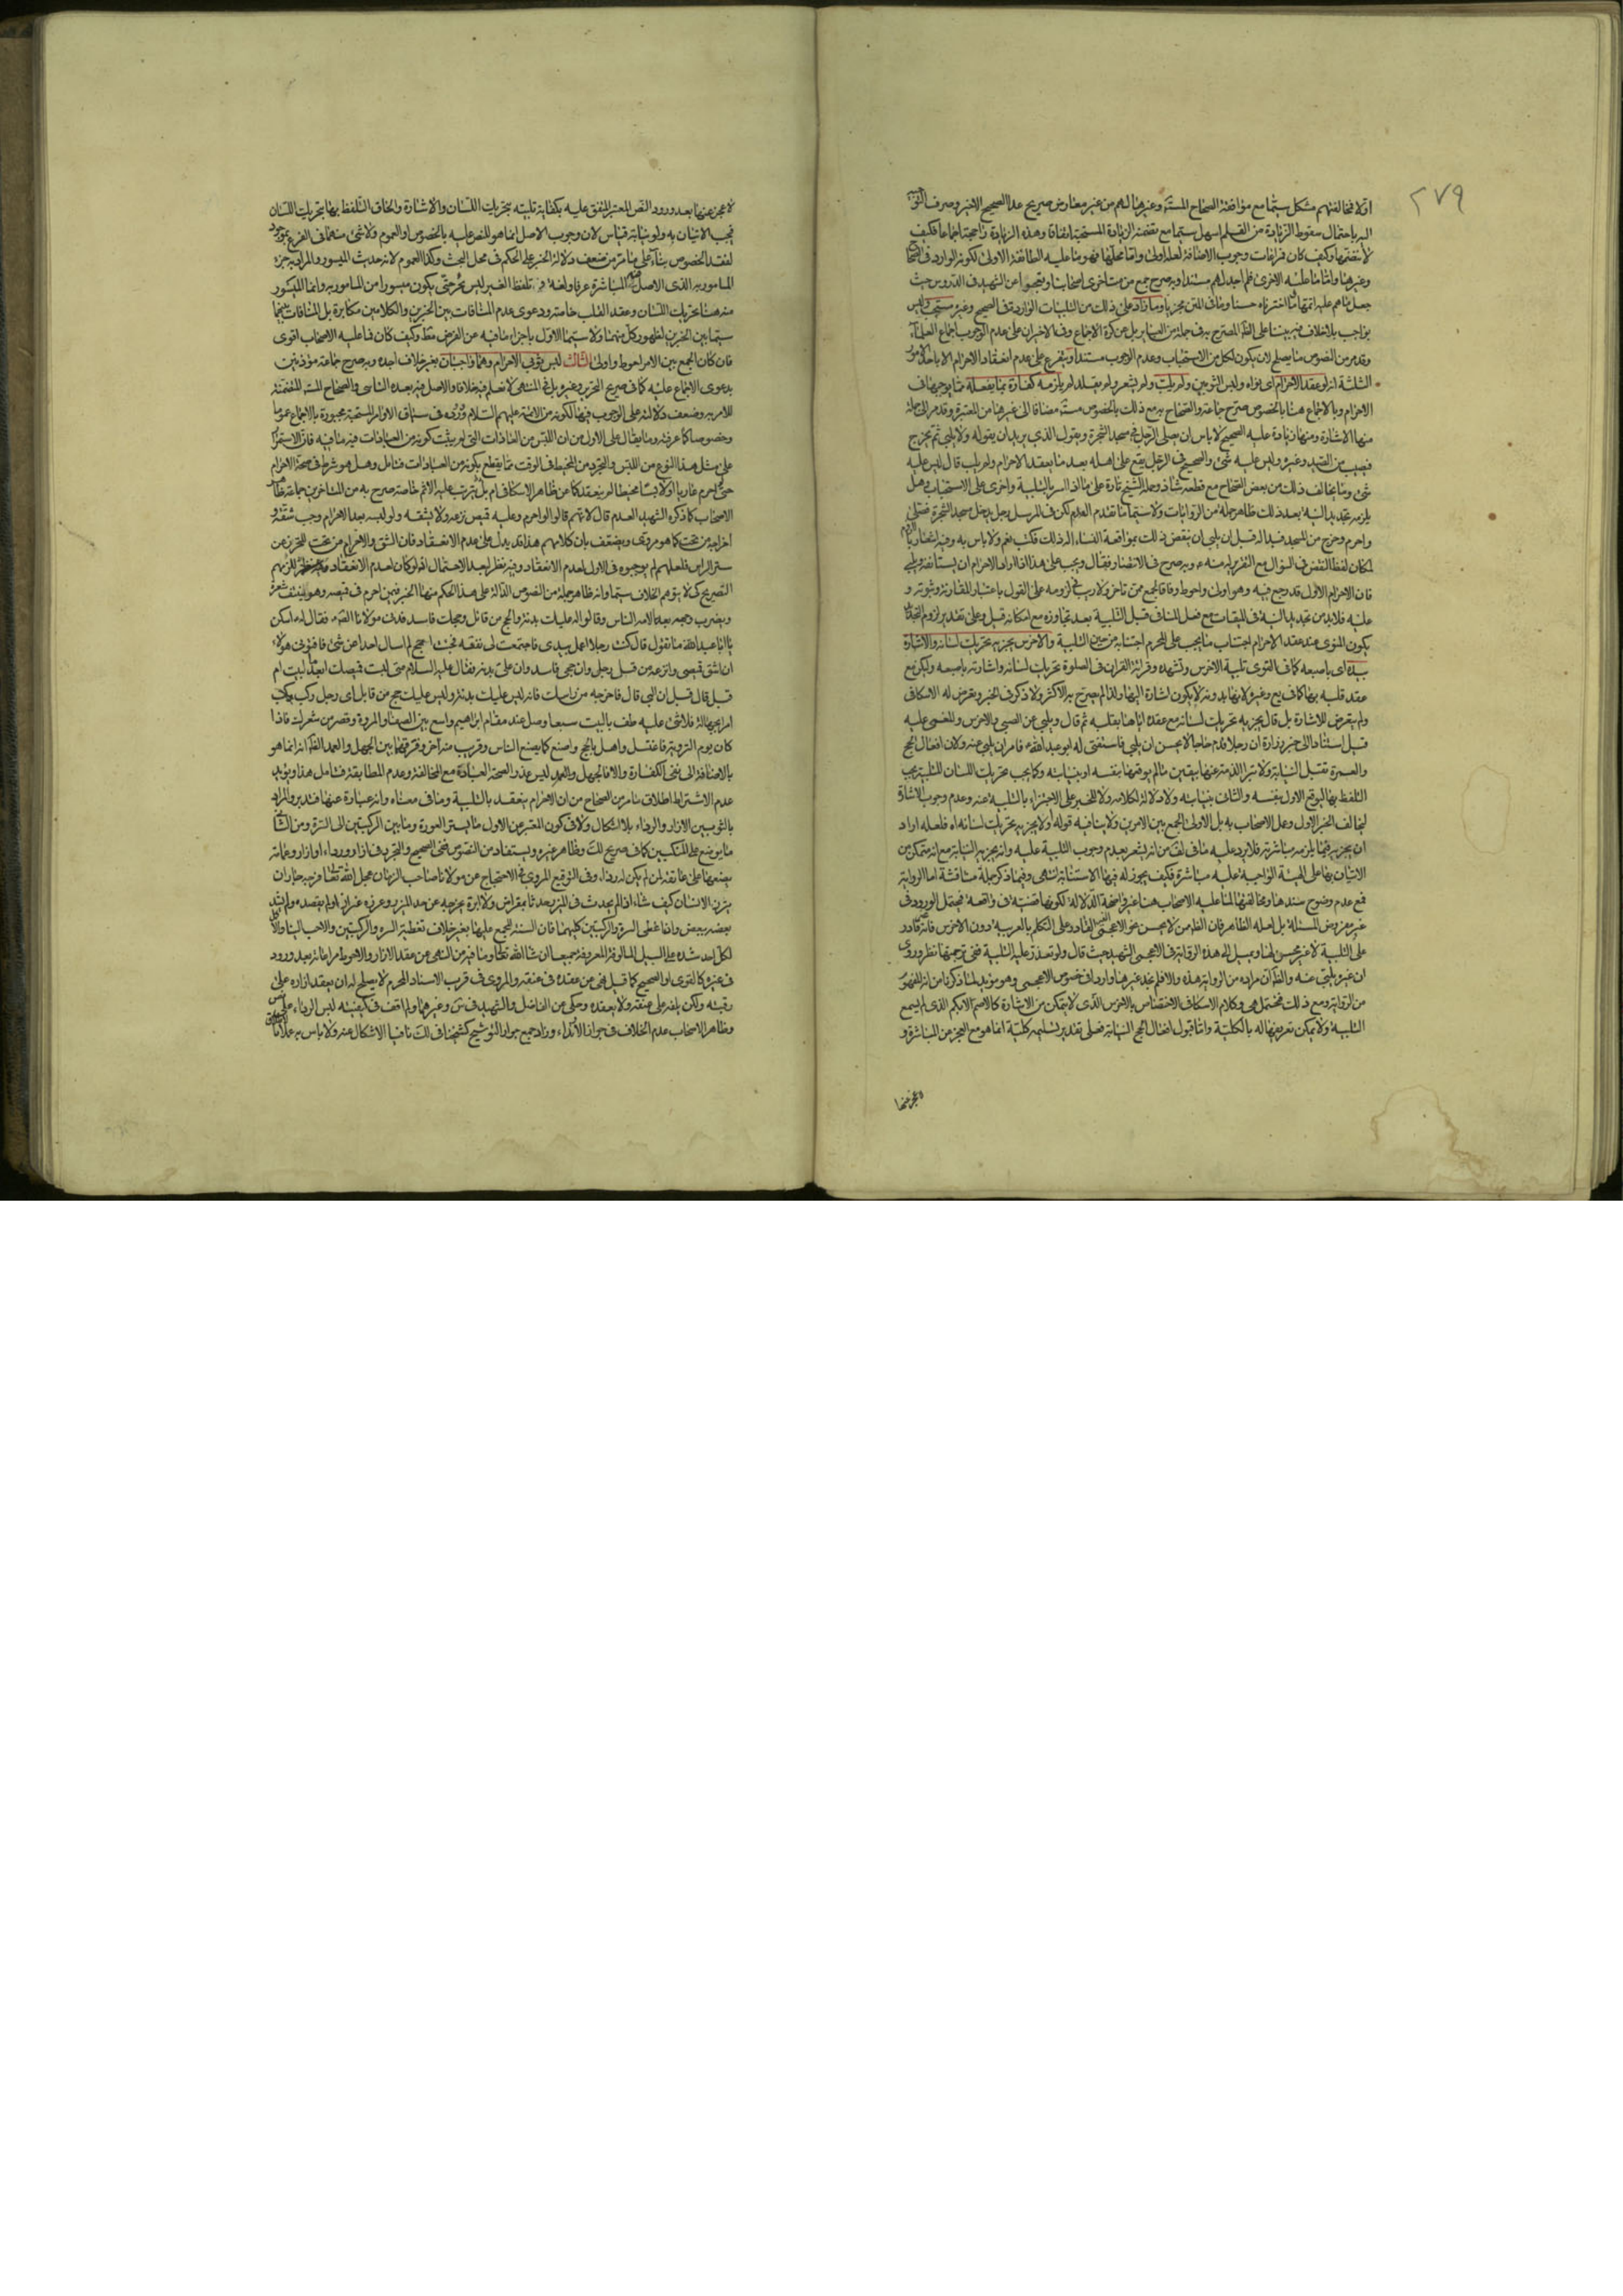 ٢٧٩
اولا مخالفتهم مشكل سيما مع موافقة الصحاح المستفيضة وغيرها لهم من غير معارض صريح عدا الصحيح الاخير وصرف التوجيه
اليه باحتمال سقوط الزيادة من القلم اسهل سيما مع تضمنه الزيادة المستحبة اتفاقا وهذه الزيادة راجحة اجماعا فكيف
وغيرها واما ما عليه الاخرى فلم اجد لهم مستندا وبه صرح جمع من متاخرى اصحابنا وتعجبوا عن الشهيد في الدروس حيث
جعل ما هم عليه اتمها مما اخترناه حسنا وما في المتن مجزيا وما زاد على ذلك من التلبيات الواردة في الصحيح وغيره مستحب وليس
بواجب بلا خلاف فيه بيننا على الظاهر المصرح به في جملة من العباير بل عن كرة الاجماع وفي الاخير ان على عدم الوجوب اجماع العلماء
وقد مر من النصوص ما يصلح لان يكون لكل من الاستحباب وعدم الوجوب مستندا ويتفرع على عدم انعقاد الاحرام الا باحد الامور
الثلثة انه لو عقد الاحرام اي نواه ولبس الثوبين ولم يلب ولم يشعر ولم يقلد لم يلزمه كفارة بما يفعله مما يوجبها في
الاحرام وبالاجماع هنا بالخصوص صرح جماعة والصحاح به مع ذلك بالخصوص مستفيضة مضافا الى غيرها من المعتبرة وقد مر الى جملة
منها الاشارة ومنها زيادة عليه الصحيح لا باس ان يصلى الرجل في مسجد الشجرة ويقول الذي يريد ان يقوله ولا يلبي ثم يخرج
فيصيب من الصيد وغيره وليس عليه شئ والصحيح في الرجل يقع على اهله بعد ما يعقد الاحرام ولم يلب قال ليس عليه
شئ وما يخالف ذلك من بعض الصحاح مع قطعه شاذ وحمله الشيخ تارة على ما اذا اسر بالتلبية واخرى على الاستحباب وهل
يلزمه تجديد النية بعد ذلك ظاهر جملة من الروايات ولا سيما ما تقدم العدم لكن في المرسل رجل دخل مسجد الشجرة فصلى
واحرم وخرج من المسجد فبدا له قبل ان يلبي ان ينقض ذلك بمواقعة النساء اله ذلك فكتب نعم ولا باس به وفيه اشعار بالنية
لمكان لفظ النقض في السؤال مع التقرير له منه وبه صرح في الانتصار فقال ويجب على هذا اذا اراد الاحرام ان يستانفه ويلبي
فان الاحرام الاول قد رجع فيه وهو اولى واحوط وفاقا لجمع ممن تاخر ولا ريب في لزومه على القول باعتبار المقارنة وثبوته و
عليه فلا بد من تجديد النية في الميقات مع فعل المنافي قبل التلبية بعد تجاوزه مع امكانه قبل وعلى تقدير لزوم التجديد
يكون المنوى عند عقد الاحرام اجتناب ما يجب على المحرم اجتنابه من حين التلبية والاخرس يجزيه تحريك لسانه والاشارة
بيده اي باصبعه كما في القوى تلبية الاخرس وتشهده وقرائة القران في الصلوة تحريك لسانه واشارته باصبعه وليكن مع
عقد قلبه بها كما في يع وغيره لانها بدونه لا يكون اشارة اليها ولذا لم يصرح به الاكثر ولا ذكر في الخبر وتعرض له الاسكافي
ولم يتعرض للاشارة بل قال يجزيه تحريك لسانه مع عقده اياها بقلبه ثم قال ويلبي عن الصبي والاخرس والمغمى عليه
قيل استنادا الى خبر زرارة ان رجلا قدم حاجا لا يحسن ان يلبي فاستفتى له ابو عبد الله فامر ان يلبي عنه ولان افعال الحج
والعمرة تقبل النيابة ولا تبرا الذمة عنها بيقين ما لم يوقعها بنفسه او بنيابته وكما يجب تحريك اللسان للتلبية يجب
التلفظ بها ليوقع الاول بنفسه والثاني بنيابته ولا دلالة لكلامه ولا للخبر على الاجتزاء بالتلبية عنه وعدم وجوب الاشارة
ليخالف الخبر الاول وعمل الاصحاب به بل الاولى الجمع بين الامرين ولا ينافيه قوله اولا يجزيه تحريك لسانه اه فلعله اراد
ان يجزيه فيما يلزمه مباشرته فلا يرد عليه ما في لف من انه يشعر بعدم وجوب التلبية عليه وانه يجزيه النيابة مع انه متمكن من
الاتيان بها على الهيئة الواجبة عليه مباشرة فكيف يجوز له فيها الاستنابة انتهى وفيما ذكر جملة مناقشة اما الرواية
فمع عدم وضوح سندها ومخالفتها لما عليه الاصحاب هنا غير واضحة الدلالة لكونها قضية في واقعة فيحتمل الورود في
غير معروض المسئلة بل لعله الظاهر فان الظاهر من لا يحسن هو الاعجمى الغير القادر على التكلم بالعربية دون الاخرس فانه غير قادر
على التلبية لا غير محسن لها ويميل اليه هذه الرواية في الاعجمى الشهيد حيث قال ولو تعذر عليه التلبية ففي ترجمتها نظر وروى
ان غيره يلبي عنه والظاهر ان مراده من الرواية هذه والا فلم نجد غيرها واردا في خصوص الاعجمى وهو مؤيد لما ذكرنا من انه المفهوم
من الرواية ومع ذلك محتمل هي وكلام الاسكافي الاختصاص بالاخرس الذي لا يتمكن من الاشارة كالاصم الابكم الذي لم يسمع
التلبية ولا يمكن تعريفها له بالكلية واما قبول افعال الحج النيابة فعلى تقدير تسليمه كلية انما هو مع العجز عن المباشرة و
لا عجز عنها
لا عجز عنها بعد ورود النص المعتبر المتفق عليه بكفاية تلبيته بتحريك اللسان والاشارة والحاق التلفظ بها بتحريك اللسان
فيجب الاتيان به ولو بنيابة قياس لان وجوب الاصل انما هو للنص عليه بالخصوص او العموم ولا شئ منهما في الفرع بموجود
لفقد الخصوص بناء على ما مر من ضعف دلالة الخبر على الحكم في محل البحث وكذا العموم لانه حديث الميسور والمراد به جزء
المامور به الذي الاصل فيه المباشرة عرفا ولغة و تلفظ الغير ليس بجزء حتى يكون ميسورا من المامور به وانما الميسور
منه هنا تحريك اللسان وعقد القلب خاصة ودعوى عدم المنافات بين الخبرين والكلامين مكابرة بل المنافات بينهما
سيما بين الخبرين لظهور كل منهما ولا سيما الاول باجزاء ما فيه عن الفرض مط وكيف كان فما عليه الاصحاب اقوى
فان كان الجمع بين الامرين احوط واولى الثالث لبس ثوبي الاحرام وهما واجبان بغير خلاف اجده وبه صرح جماعة مؤذنين
بدعوى الاجماع عليه كما في صريح التحرير وغيره بل في المنتهى لا نعلم فيه خلافا والاصل فيه بعده التاسي والصحاح المستفيضة المتضمنة
للامر به وضعف دلالته على الوجوب فيها لكونه من الائمة عليهم السلام ورد في سياق الاوامر المستحبة مجبورة بالاجماع عموما
وخصوصا كما عرفته وما يقال على الاول من ان اللبس من العادات التي لم يثبت كونه من العبادات فيه ما فيه فان الاستمرار
على مثل هذا النوع من اللبس والتجرد من المخيط في الوقت مما يقطع بكونه من العبادات فتامل وهل هو شرط في صحة الاحرام
حتى لو احرم عاريا او لابسا مخيطا لم ينعقد كما عن ظاهر الاسكافي ام بل يترتب عليه الاثم خاصة صرح به من المتاخرين جماعة ظاهر
الاصحاب كما ذكره الشهيد العدم قال لانهم قالوا لو احرم وعليه قميص نزعه ولا يشقه ولو لبسه بعد الاحرام وجب شقه و
اخراجه من تحت كما هو مروى ويضعف بان كلامهم هذا قد يدل على عدم الانعقاد فان الشق والاخراج من تحت للتحرز عن
ستر الراس فلعلهم لم يوجبوه في الاول لعدم الانعقاد وفيه نظر لبعد الاحتمال اذ لو كان لعدم الانعقاد للزمهم
التصريح كيلا يتوهم الخلاف سيما وانه ظاهر جملة من النصوص الدالة على هذا الحكم منها الخبر فيمن احرم في قميصه وهو ينتف شعره
ويضرب وجهه بعد لامه الناس وقالوا له عليك بدنة والحج من قابل وحجك فاسد فدنى مولانا القوم فقال له اسكن
يا ابا عبد الله ما تقول قال كنت رجلا اعمل بيدي فاجتمعت لي نفقة فجئت احج لم اسال احدا عن شئ فافتوني هؤلاء
ان اشق قميصي وانزعه من قبل رجلي وان حجى فاسد وان علي بدنة فقال عليه السلام متى لبست قميصك ابعد ما لبيت ام
قبل قال قبل ان البي قال فاخرجه من راسك فانه ليس عليك بدنة وليس عليك حج من قابل اي رجل ركب
امرا بجهالة فلا شئ عليه طف بالبيت سبعا وصل عند مقام ابراهيم واسع بين الصفا والمروة وقصر من شعرك فاذا
كان يوم التروية فاغتسل واهل بالحج واصنع كما يصنع الناس وقريب منه اخر وفرقهما بين الجهل والعمد الظاهر انه انما هو
بالاضافة الى نفي الكفارة والا فالجهل والعمد ليس عذرا لصحة العبادة مع المخالفة وعدم المطابقة فتامل هذا ويؤيد
عدم الاشتراط اطلاق ما مر من الصحاح من ان الاحرام ينعقد بالتلبية وما في معناه وانه عبارة عنها فتدبر والمراد
بالثوبين الازار والرداء بلا اشكال ولا في كون المعتبر من الاول ما يستر العورة وما بين الركبتين الى السرة ومن الثاني
ما يوضع على المنكبين كما في صريح لك وظاهر غيره ويستفاد من النصوص ففي الصحيح والتجرد في ازار ورداء او ازار وعمامة
يضعها على عاتقه لمن لم يكن له رداء وفي التوقيع المروي في الاحتجاج عن مولانا صاحب الزمان عجل الله تعالى فرجه جاز ان
يتزر الانسان كيف شاء اذا لم يحدث في الميزر حدثا بمقراض ولا ابرة يخرجه عن حد الميزر وغرزه غرزا ولم يعقده ولم يشد
بعضه ببعض واذا غطى السرة والركبتين كليهما فان السنة المجمع عليها بغير خلاف تغطية السرة والركبتين والاحب الينا والافضل
لكل احد شده على السبيل المالوفة المعروفة جميعا ان شاء الله تعالى وما فيه من النهي عن عقد الازار والاحوط مراعاته بعد ورود
في غيره كالقوى او الصحيح كما قيل نهى عن عقده في عنقه والمروي في قرب الاسناد المحرم لا يصلح له ان يعقد ازاره على
رقبته ولكن يثنيه على عنقه ولا يعقده وحكى عن الفاضل والشهيد في س وغيرهما ولم اقف في كيفية لبس الرداء على نص
وظاهر الاصحاب عدم الخلاف في جواز الارتداء وزاد جمع جواز التوشيح كشيخنا في لك نافيا الاشكال عنه ولا باس به عملا